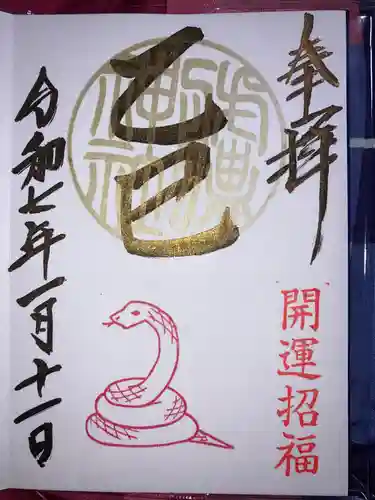 奉拝
乙巳
開運招福
令和七年一月十一日